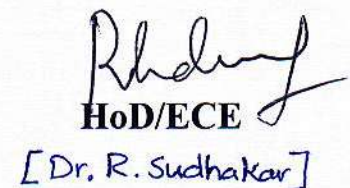 HoD/ECE
[Dr. R. Sudhakar]